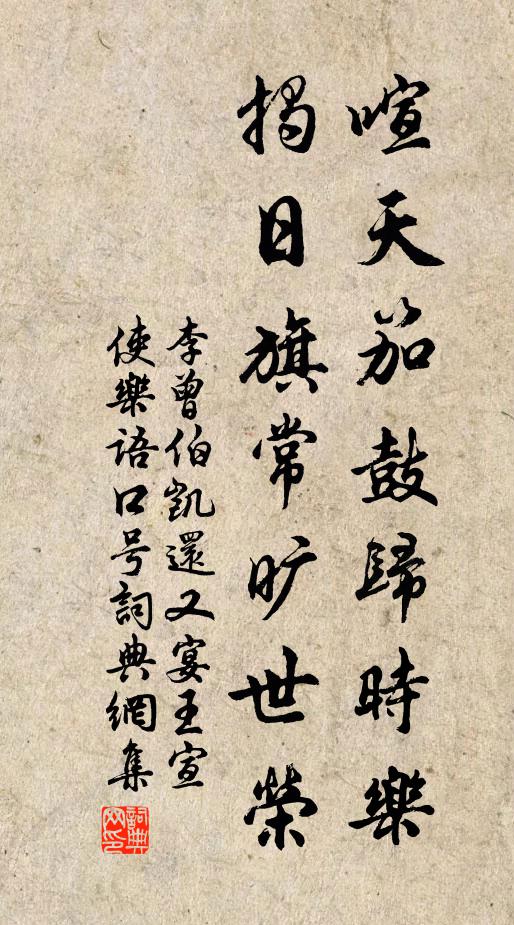 喧天笳鼓歸時樂
揭日旗常旷世榮
李曾伯凱還又宴王宣
使樂語口号詞典網集
詞典网印